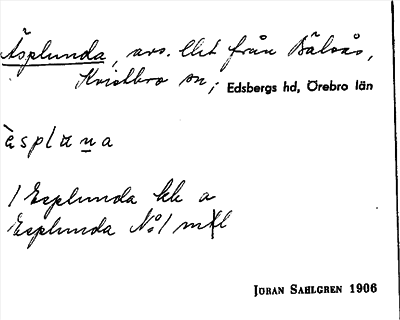 Äsplunda, avs. Ebet från Bälsås,
Kvistbro sn, Edsbergs hd, Örebro län
èsplαna
1 Esplunda kk a
Esplunda No 1 mtl
JÖRAN SAHLGREN 1906